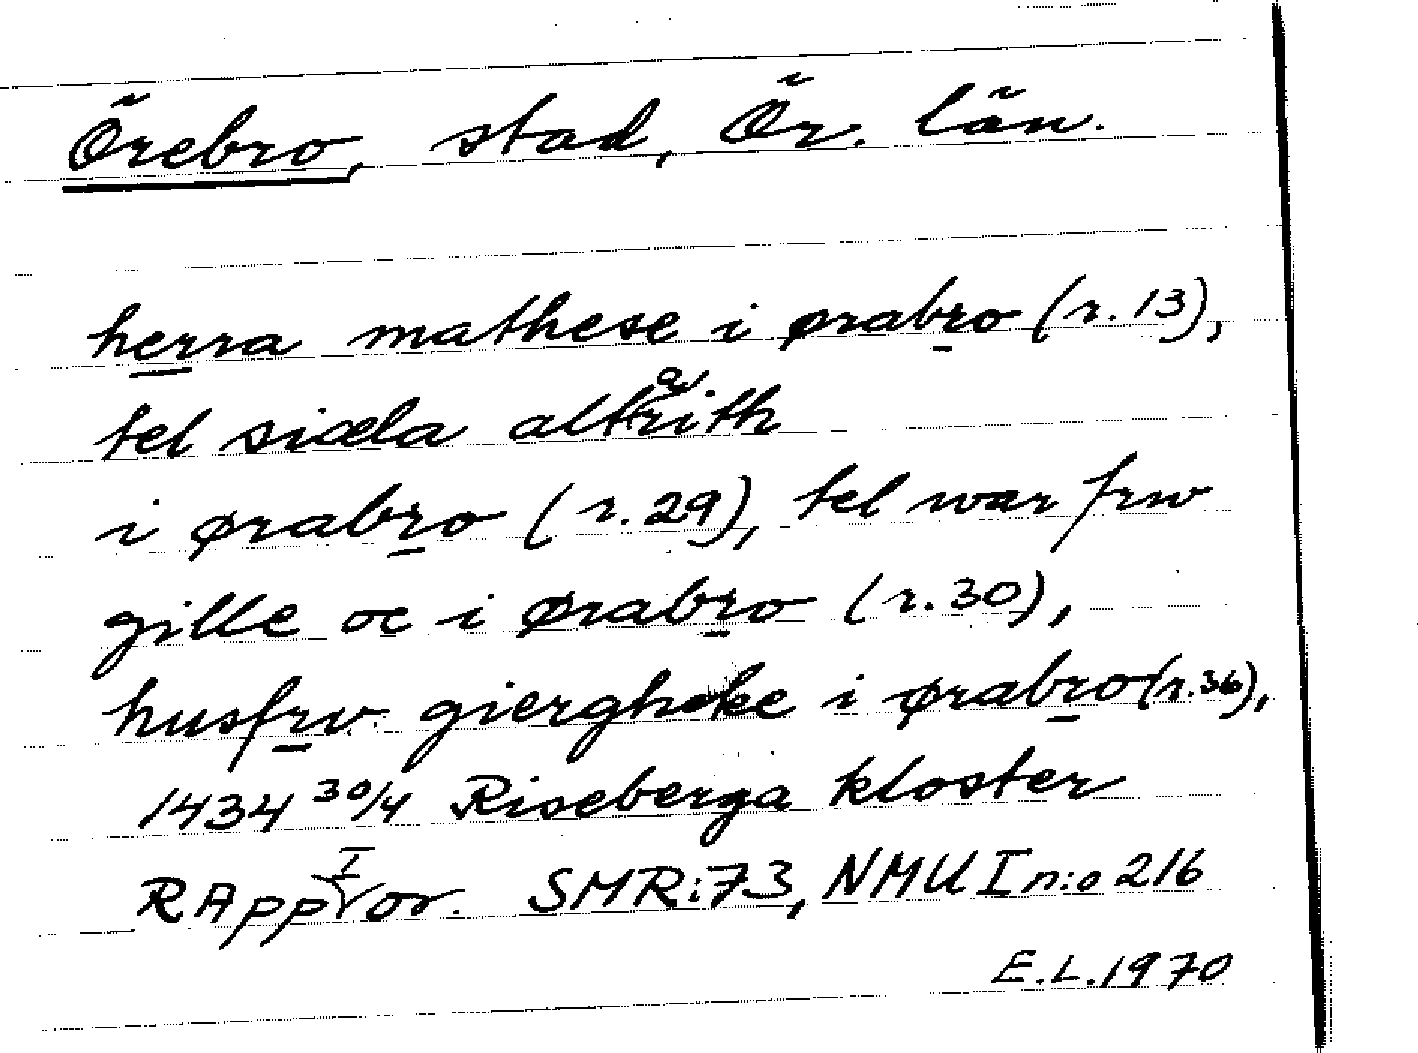 Örebro, stad, Ör. län.
herra mathese i ørabro (r. 13),
tel siæla altarith
i ørabro (r. 29), tel war frw
gille oc i ørabro (r. 30),
husfrv giergheke i ørabro (r. 36),
1434 30/4 Riseberga kloster
RApp I or. SMR:73, NMU I n:o 216
E.L. 1970